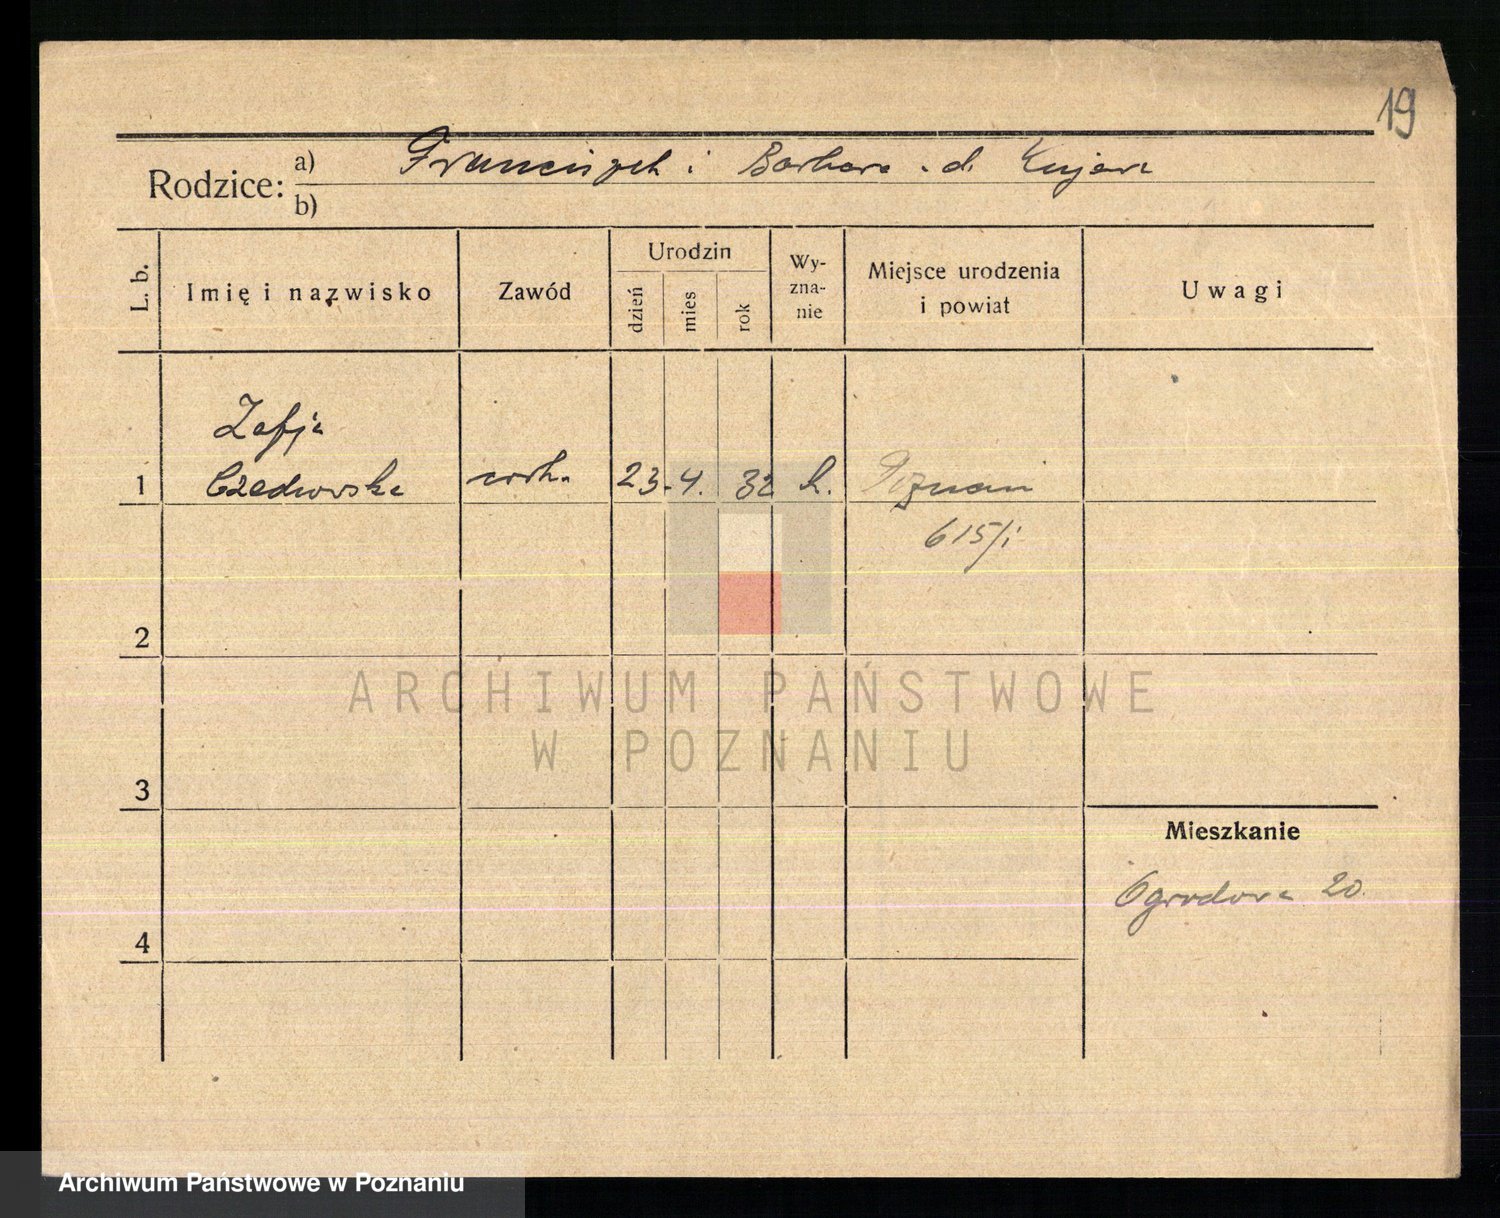 19
Rodzice: a) Franciszek i Barbara .d. Kujawa
b)
L. b.
Imię i nazwisko
Zawód
Urodzin
dzień
mies
rok
Wy-
zna-
nie
Miejsce urodzenia
i powiat
Uwagi
Zofja
1 córk. 23. 4. 32 k. Poznań
615/i
2
3
4
Mieszkanie
Ogrodowa 20.
ARCHIWUM PAŃSTWOWE
W POZNANIU
Archiwum Państwowe w Poznaniu